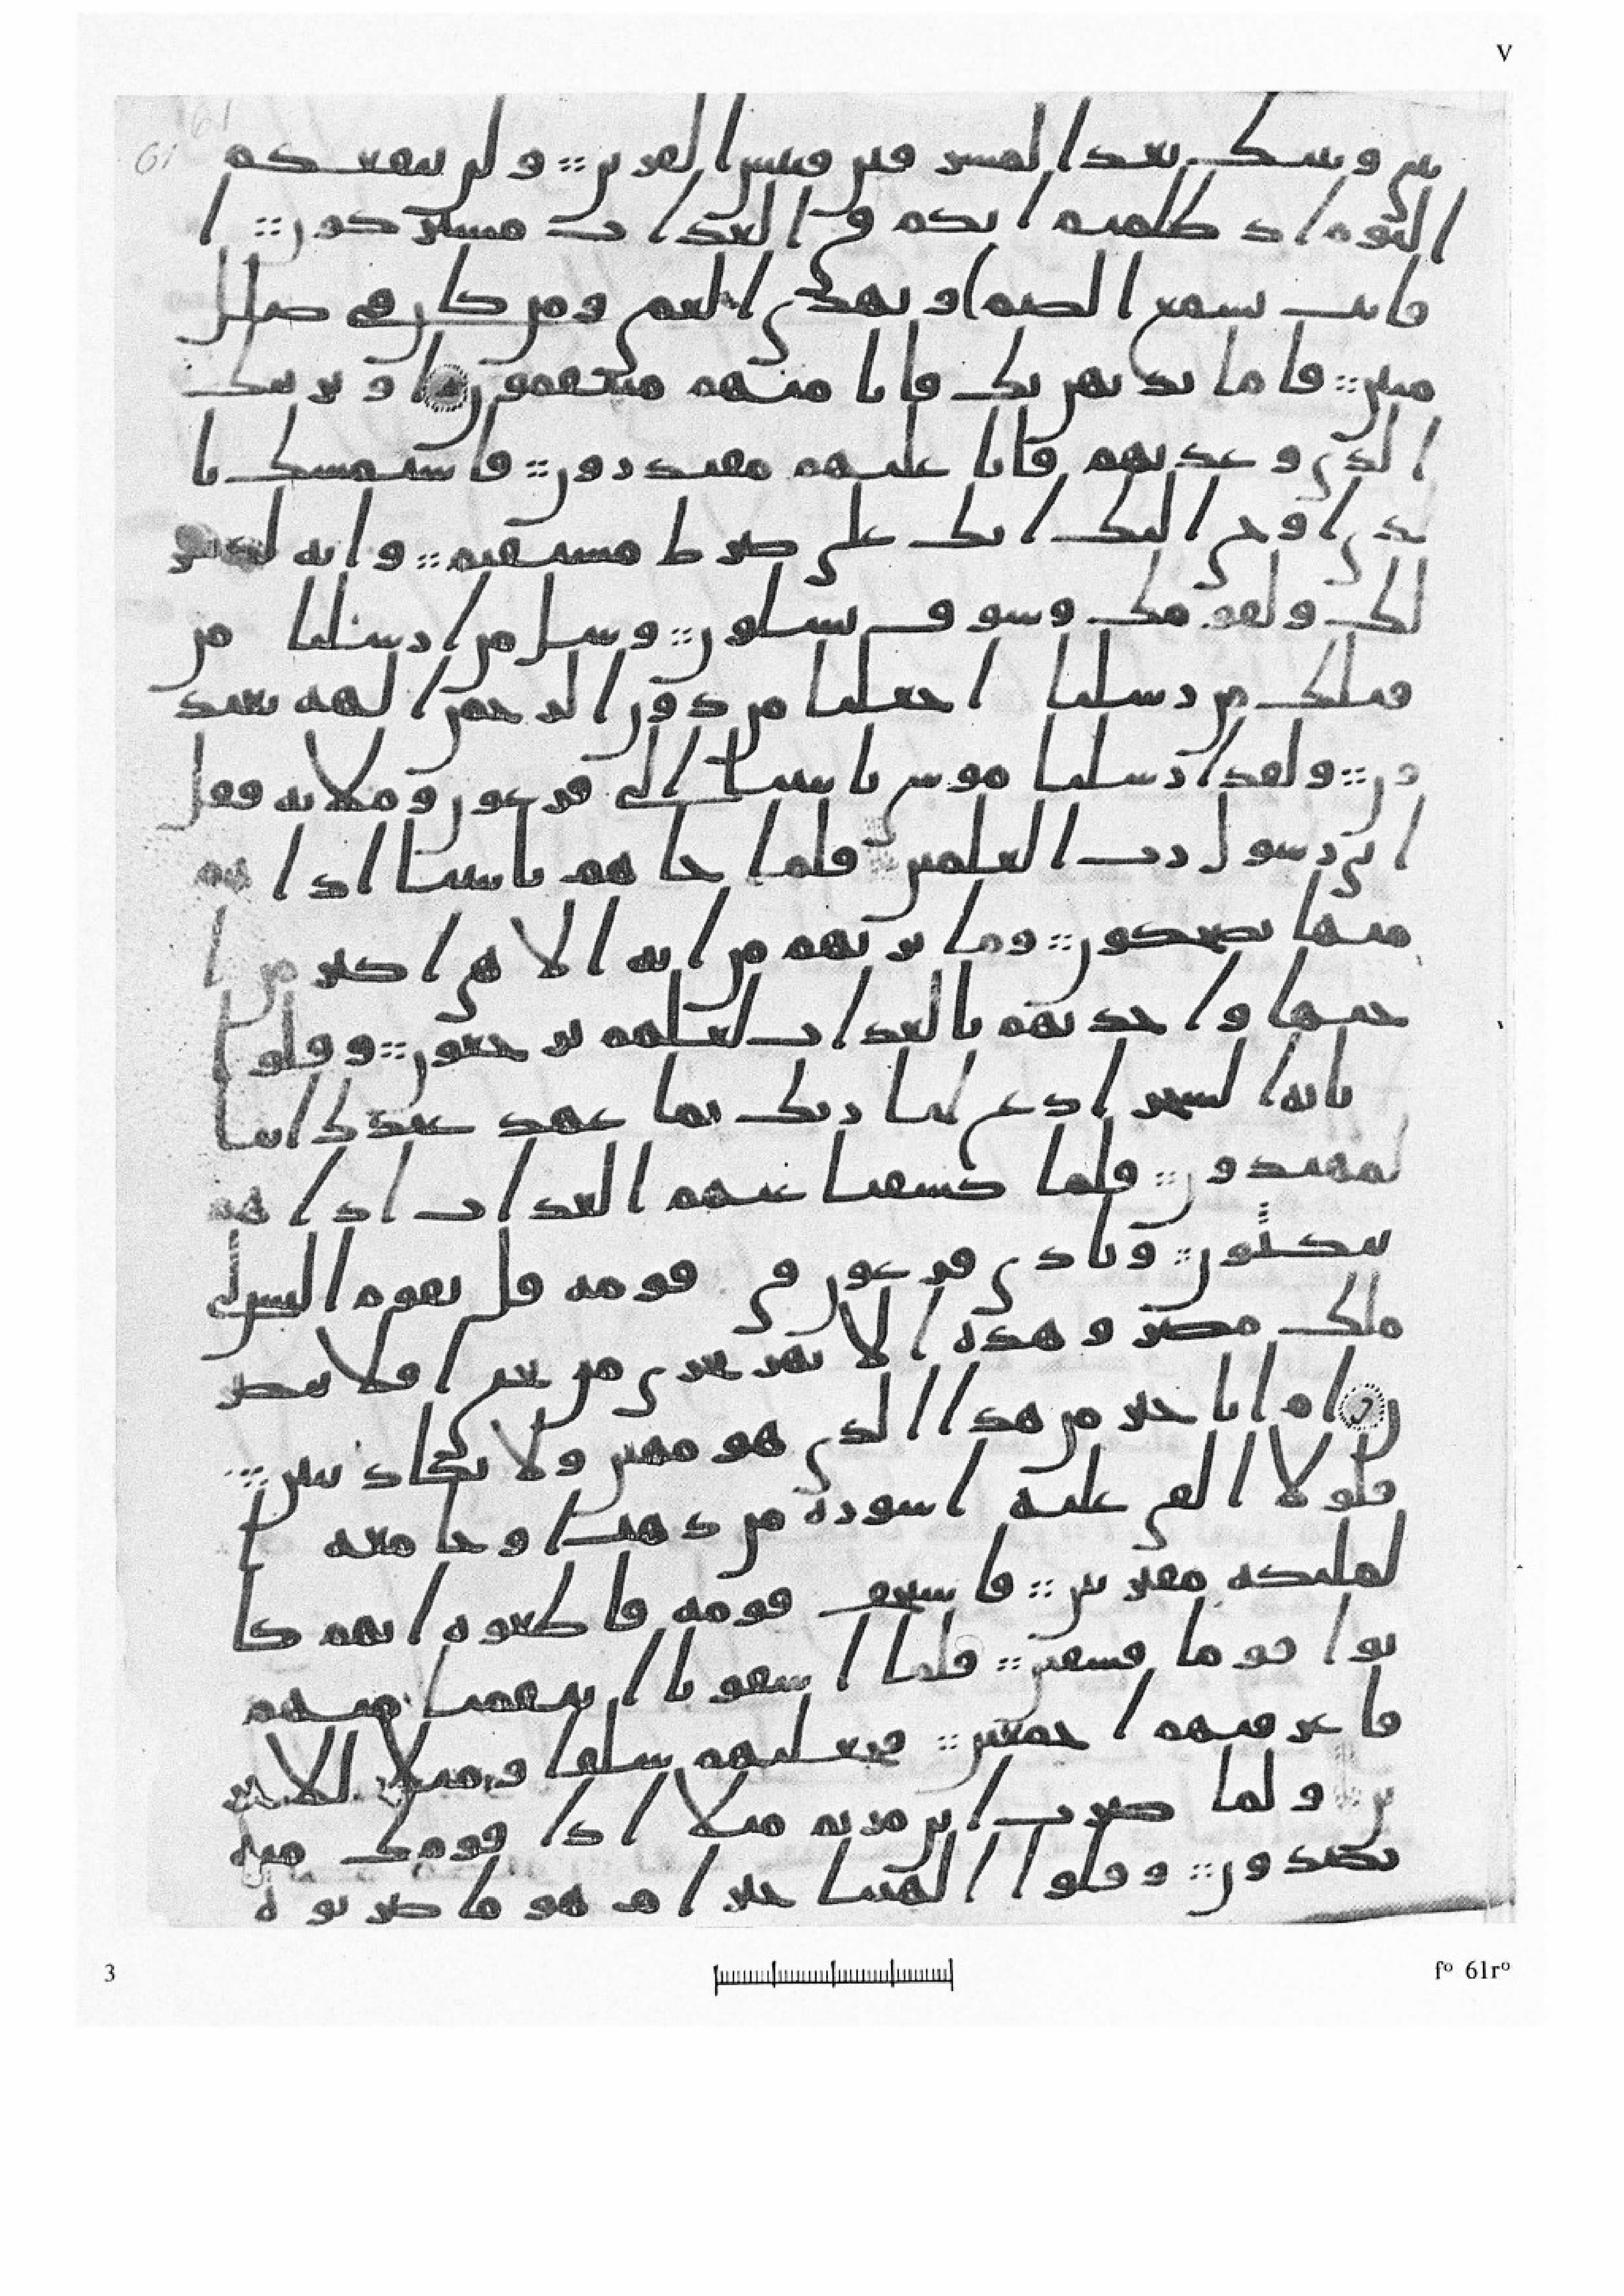 V
61
61
يني وبينك بعد المشرقين فبيس القرين :: ولن ينفعكم
اليوم اذ ظلمتم انكم في العذاب مشتركون :: ا
فانت تسمع الصم او تهدي العمي ومن كان في ضلل
مبين :: فاما نذهبن بك فانا منهم منتقمون او نرينك
الذي وعدنهم فانا عليهم مقتدرون :: فاستمسك با
لذي اوحي اليك انك على صرط مستقيم :: وانه لذكر
لك ولقومك وسوف تسلون :: وسل من ارسلنا من
قبلك من رسلنا اجعلنا من دون الرحمن الهه يعبد
ون :: ولقد ارسلنا موسى باييتنا الى فرعون وملايه فقل
اني رسول رب العلمين :: فلما جاهم باييتنا اذا هم
منها يضحكون :: وما نريهم من ايه الا هي اكبر من ا
ختها واخذنهم بالعذاب لعلهم يرجعون :: وقلوا
يايه السحر ادع لنا ربك بما عهد عندك اننا
لمهتدون :: فلما كشفنا عنهم العذاب اذا هم
ينكثون :: ونادى فرعون في قومه قل يقوم اليس لي
ملك مصر وهذه الانهر تجري من تحتي افلا تبصر
ون ام انا خير من هذا الذي هو مهين ولا يكاد يبين ::
فلولا القي عليه اسوره من ذهب او جا معه ا
لمليكه مقترنين :: فاستخف قومه فاطعوه انهم كا
نوا قوما فسقين :: فلما اسفونا انتقمنا منهم
فاغرقنهم اجمعين :: فجعلنهم سلفا ومثلا للاخر
ين :: ولما ضرب ابن مريم مثلا اذا قومك منه
يصدون :: وقلوا االهتنا خير ام هو ما ضربوه
3
fº 61rº